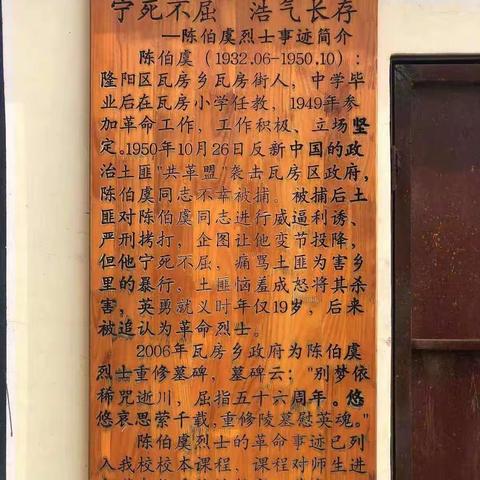 宁死不屈 浩气长存
—陈伯虞烈士事迹简介
陈伯虞（1932.06-1950.10）：
隆阳区瓦房乡瓦房街人，中学毕
业后在瓦房小学任教，1949年参
加革命工作，工作积极、立场坚
定。1950年10月26日反新中国的政
治土匪"共革盟"袭击瓦房区政府，
陈伯虞同志不幸被捕。被捕后土
匪对陈伯虞同志进行威逼利诱、
严刑拷打，企图让他变节投降，
但他宁死不屈，痛骂土匪为害乡
里的暴行，土匪恼羞成怒将其杀
害，英勇就义时年仅19岁，后来
被追认为革命烈士。
2006年瓦房乡政府为陈伯虞
烈士重修墓碑，墓碑云："别梦依
稀咒逝川，屈指五十六周年。悠
悠哀思萦千载，重修陵墓慰英魂。"
陈伯虞烈士的革命事迹已列
入我校校本课程，课程对师生进